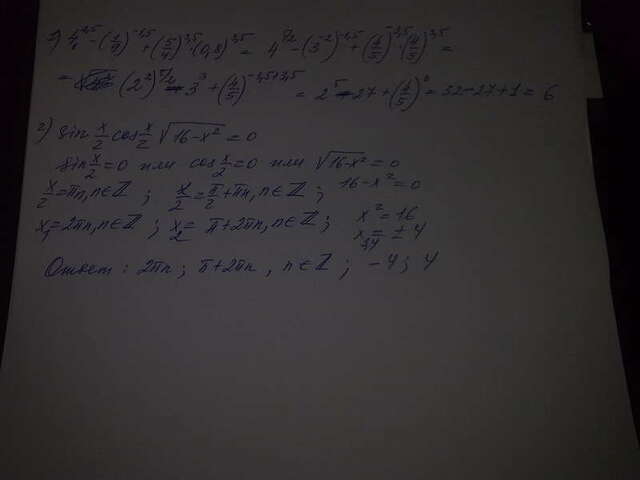 1) 4^{2,5} - (1/9)^{-1,5} + (5/4)^{3,5} · (0,8)^{3,5} = 4^{5/2} - (3^{-2})^{-1,5} + (4/5)^{-3,5} · (4/5)^{3,5} =
= (2^2)^{5/2} - 3^3 + (4/5)^{-3,5+3,5} = 2^5 - 27 + (4/5)^0 = 32 - 27 + 1 = 6
2) sin x/2 cos x/2 √(16-x^2) = 0
sin x/2 = 0 или cos x/2 = 0 или √(16-x^2) = 0
x/2 = πn, n∈Z ; x/2 = π/2 + πn, n∈Z ; 16-x^2 = 0
x_1 = 2πn, n∈Z ; x_2 = π+2πn, n∈Z ; x^2 = 16
x_{3,4} = ±4
Ответ : 2πn ; π+2πn , n∈Z ; -4 ; 4